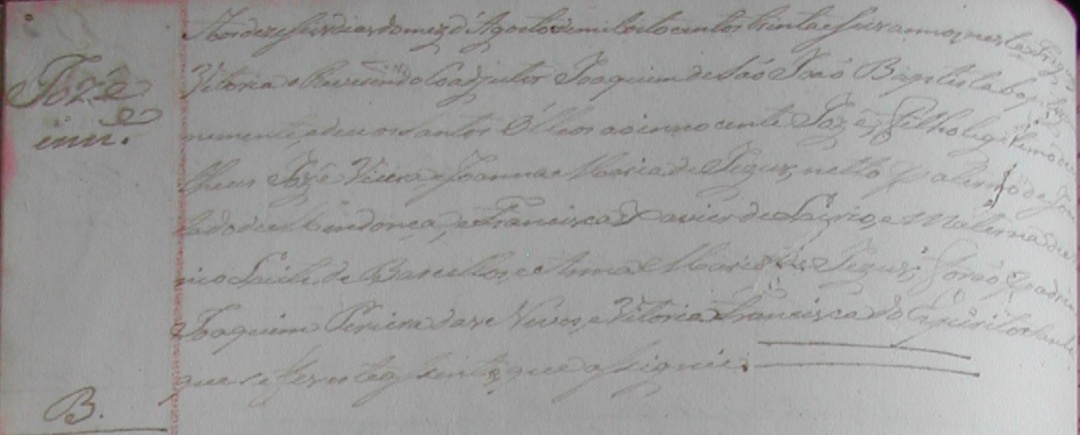 Jozê
inn.
Aos dezeseis dias do mez d'Agosto de mil oito centos trinta e seis annos, nesta Freg.
Vitoria o Reverendo Coadjutor Joaquim de São João Baptista bap
nemente, e deu os Santos Óleos ao innocente Jozê, Filho legitimo de
Jozê Vieira e Joanna Maria de Jezus, netto Paterno de
de Mendonça, e Francisca Xavier de e Materno de
nio Leite de Barcellos, e Anna Maria de Jezus; forão Padrin
Joaquim Periera das Neves, e Vitoria Francisca do Espirito Santo
que se fez este que assignei.
B.